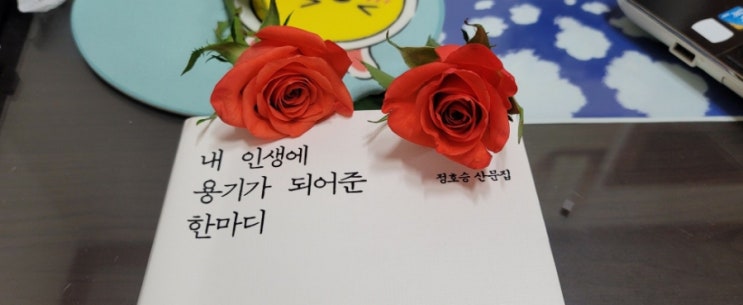 내 인생에
용기가 되어준
한마디
정호승 산문집